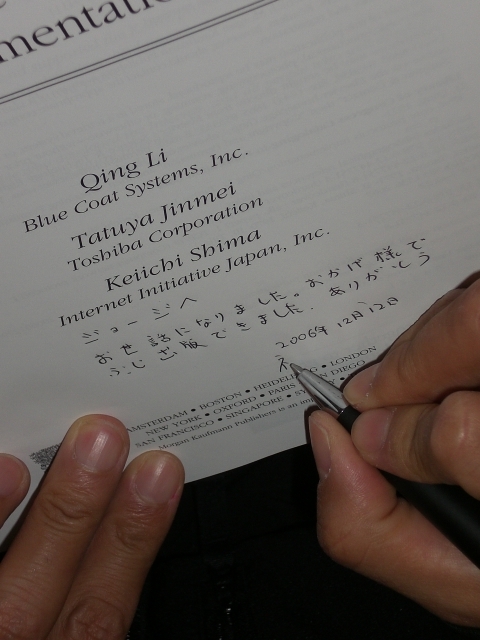 mentatio
Qing Li
Blue Coat Systems, Inc.
Tatuya Jinmei
Toshiba Corporation
Keiichi Shima
Internet Initiative Japan, Inc.
ジョージへ
お世話になりました。おかげ様で
ぶじ出版できました. ありがとう
2006年 12月12日
AMSTERDAM • BOSTON • HEIDELBERG • LONDON
NEW YORK • OXFORD • PARIS • SAN DIEGO
SAN FRANCISCO • SINGAPORE •
Morgan Kaufmann Publishers is an